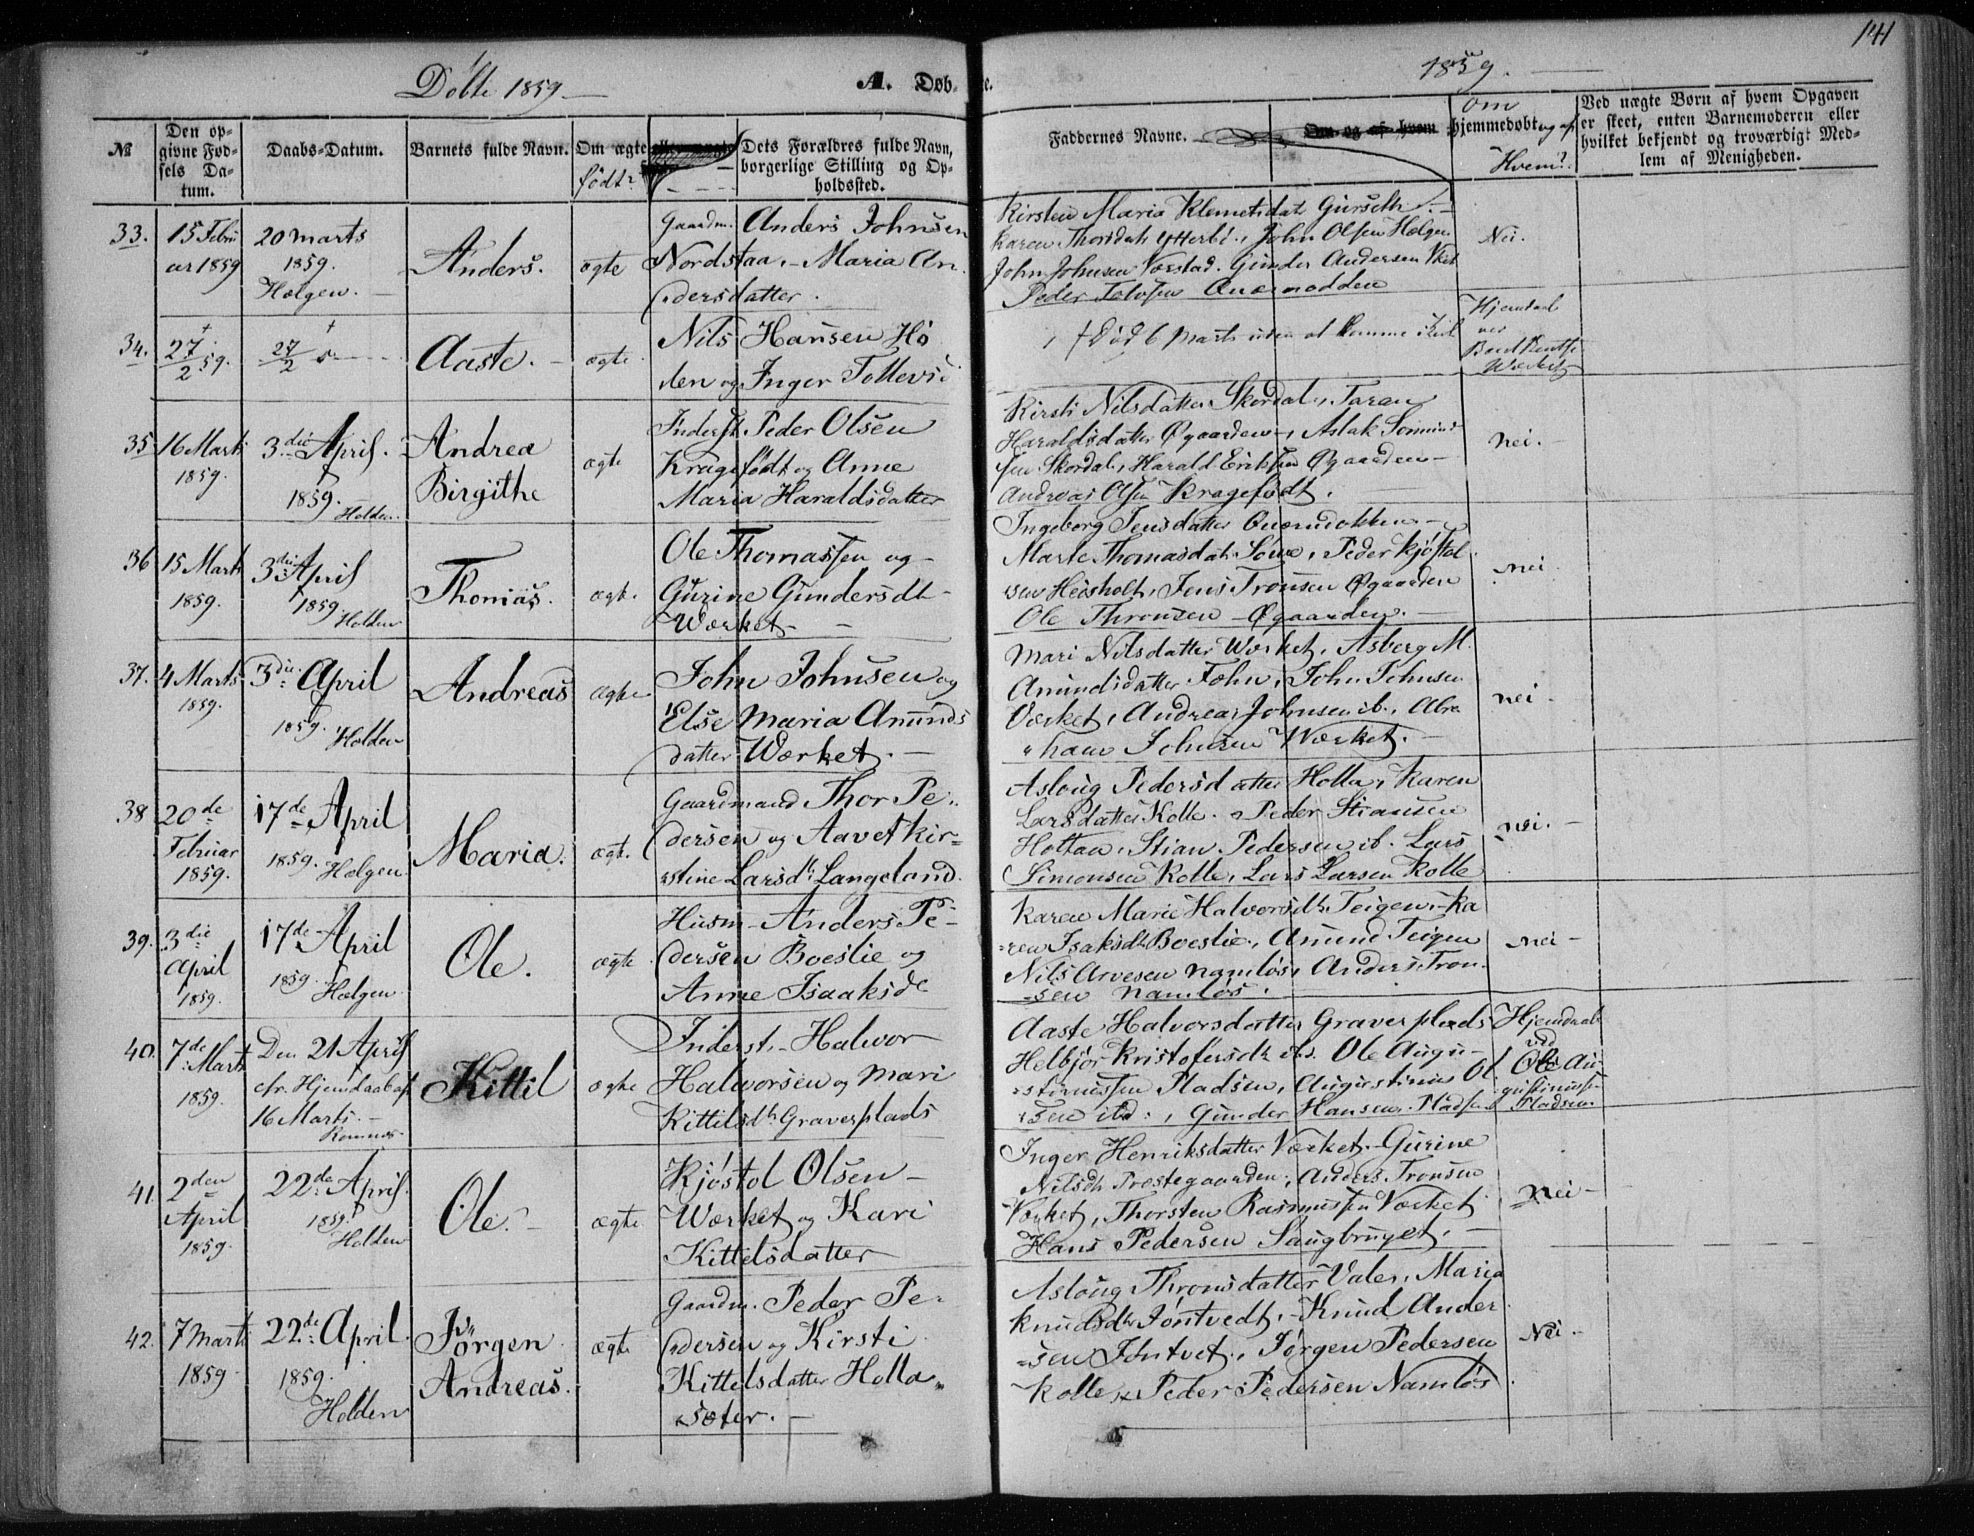 141
Døbte 1859
A. Døb- e.
1859.
No
Den op-
givne Fød-
sels Da-
tum.
Daabs-Datum.
Barnets fulde Navn.
Om ægte
født?
Dets Forældres fulde Navn,
borgerlige Stilling og Op-
holdssted.
Faddernes Navne.
Om og af hvem
om
hjemmedøbt og af
Hvem?
Ved uægte Børn af hvem Opgaven
er skeet, enten Barnemoderen eller
hvilket bekjendt og troværdigt Med-
lem af Menigheden.
33.
15 Febru
ar 1859
20 Marts
1859.
Helgen.
Anders.
ægte
Gaardm. Anders Johnsen
Nordstaa. - Maria An
dersdatter.
Kirsten Maria Klemetsdat
Karen Thorsdat Ytterbø, John Olsen Helgen
John Johnsen Gunder Andersen
Peder
Nei.
34.
27/2 59.
27/2
Aaste.
ægte.
Nils Hansen Hø
den og Inger Tollevs
† død 6 Marts uden at komme i Kirk
Hjemdøbt
ved
Værket
35
16 Marts
1859.
3die April.
1859.
Holden.
Andrea
Birgithe
ægte
Inderst. Peder Olsen
Kragefødt og Anne
Maria Haraldsdatter
Kirsti Nilsdatter Skordal, Taran
Haraldsdatter Øgaarden, Aslak
sen Skordal, Harald Eriksen Øgaarden
Andreas Olsen Kragefødt.
nei.
36
15 Marts
1859.
3die April
1859.
Holden
Thomas.
ægte.
Ole Thomassen og
Gurine Gundersdt
Værket
Ingeborg Jensdatter
Marte Thomasdat Peder Kjøstel
sen Heisholt, Jens Tronsen Øgaarden
Ole Thronsen Øgaarden.
nei
37.
4 Marts
1859.
3die April
1859.
Holden
Andreas
ægte
John Johnsen og
Else Maria Amunds
datter Værket.
Mari Nilsdatter Værket, Asberg M.
Amundsdatter John Johnsen
Værket, Andreas Johnsen ib., Abra
ham Johnsen Værket.
nei
38
20de
Februar
1859.
17de April
1859.
Helgen
Maria.
ægt.
Gaardmand Thor Pe-
dersen og Aavet Kir-
stine Larsdt Langeland.
Asloug Pedersdatter Holta, Karen
Larsdatter Kolle. Peder Stiansen
Holtan, Stian Pedersen ib. Lars
Simonsen Kolle, Lars Larsen Kolle
nei.
39.
3die
April
1859.
17de April
1859.
Helgen
Ole.
ægte
Husm. Anders Pe-
dersen Boeslie og
Anne Isaaksd
Karen Marie Halvorsdt Teigen, Ka
ren Isaksdt Boeslie, Amund Teigen
Nils Arvesen Namløs, Anders Tron-
sen Namløs.
nei
40.
7de
Marts
1859.
Den 21 April
efr. Hjemdaab af
16 Marts.
Romnes
Kittil
ægte
Inderst. Halvor
Halvorsen og Mari
Kittilsdt Graverplads
Aaste Halvorsdatter Graverplads
Helbjør Kristofersdt ibd. Ole Augu-
stinussen Pladsen, Augustinus Ol
sen ibd., Gunder Hansen Pladsen
Hjemdaab
ved
Ole Au
gustinussen
Pladsen
41.
2den
April
1859.
22de April.
1859.
Holden
Ole.
ægte
Kjøstol Olsen
Værket og Kari
Kittelsdatter
Inger Henriksdatter Værket. Gurine
Nilsdt Præstegaarden, Anders Tronsen
Værket, Thorsten Rasmussen Værket
Hans Pedersen Saugbruget.
Nei
42.
7 Marts
1859
22de April.
1859.
Holden
Jörgen
Andreas.
ægte
Gaardm. Peder Pe-
dersen og Kirsti
Kittelsdatter Holla
sæter.
Asloug Thronsdatter Valer, Maria
Knudsdt Jøntvedt, Knud Ander
sen Jøntvet, Jørgen Pedersen
Kolle, Peder Pedersen Namløs
Nei